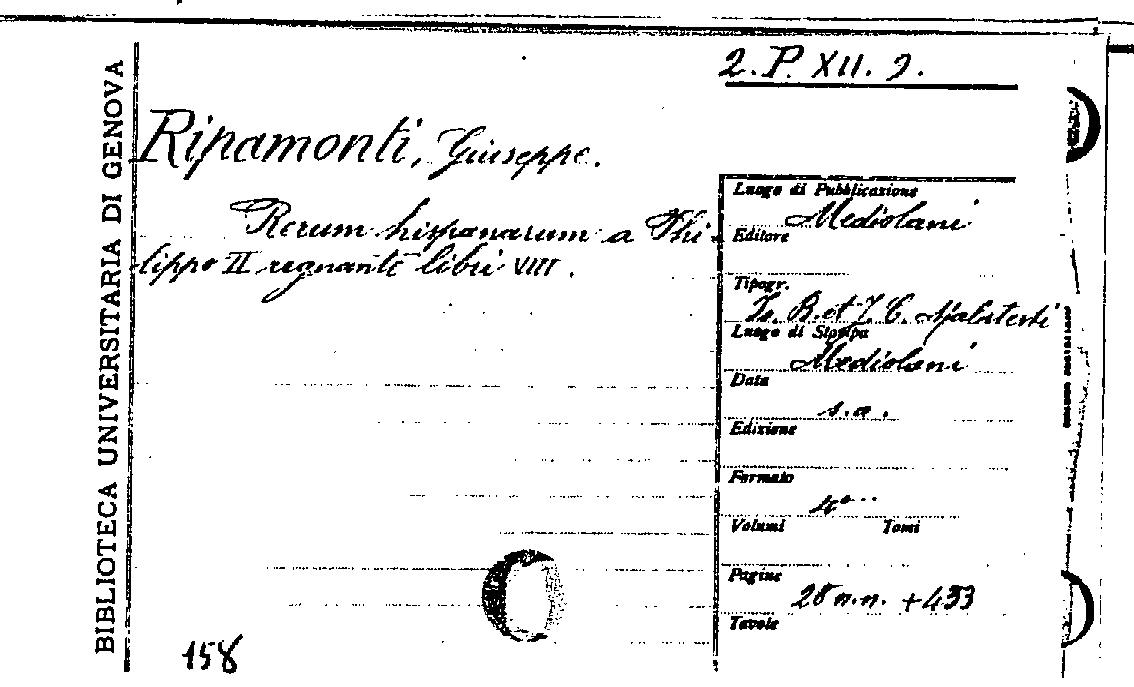 BIBLIOTECA UNIVERSITARIA DI GENOVA
2. P. XII. 9.
Ripamonti, Giuseppe.
Rerum hispanarum a Phi-
lippo II regnante libri VIII.
Luogo di Pubblicazione
Mediolani
Editore
Tipogr.
Io. B. et I. C. Malatesti
Luogo di Stampa
Mediolani
Data
s.a.
Edizione
Formato
4°
Volumi Tomi
Pagine
28 n.n. + 433
Tavole
158